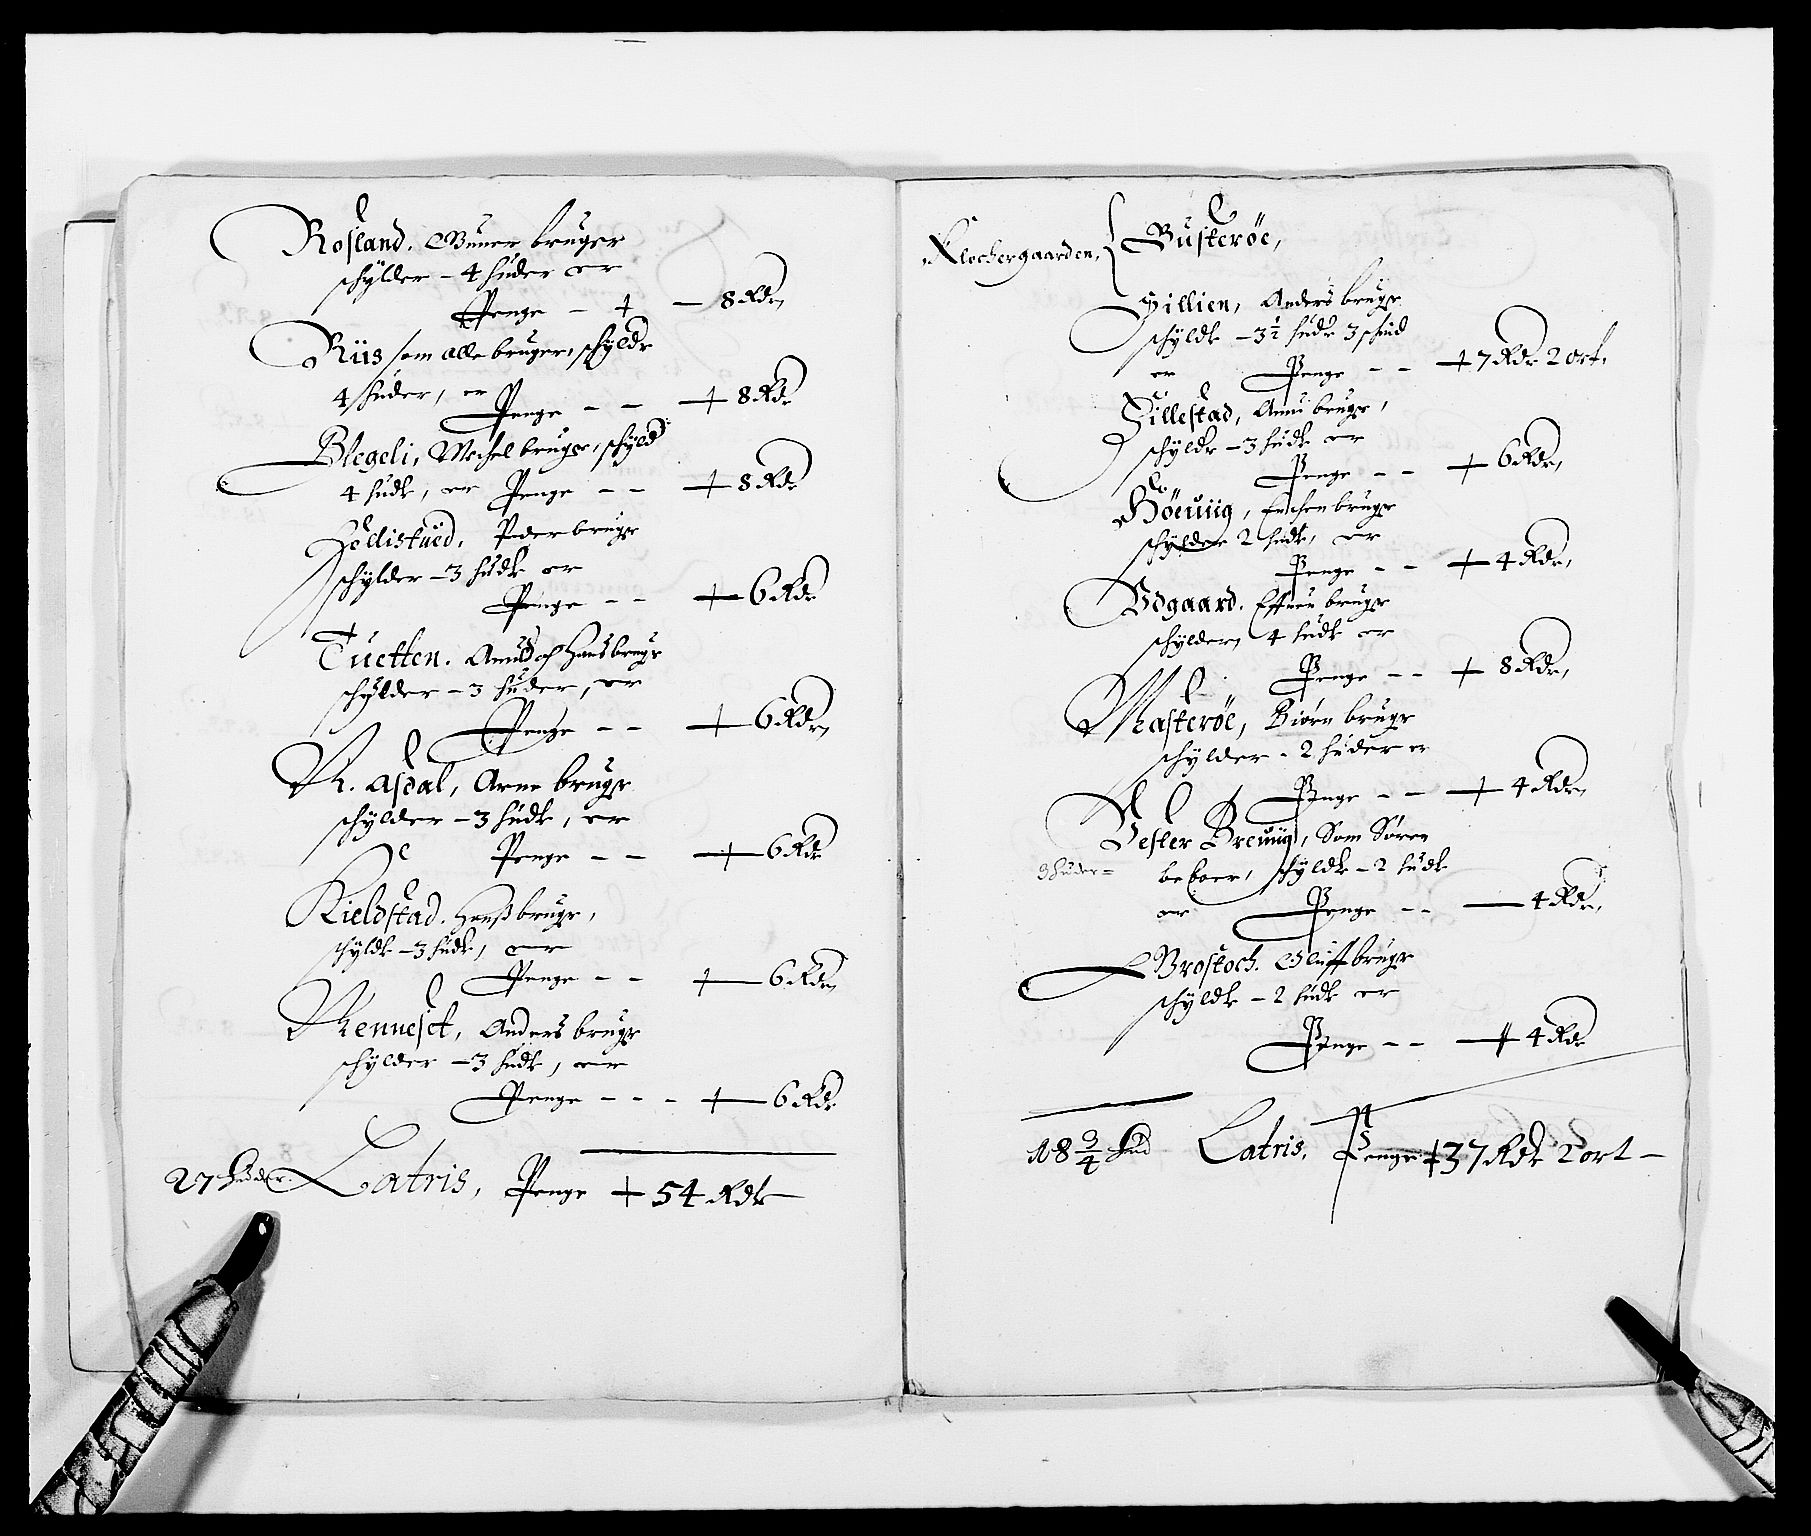 Rosland. Guner bruger
schylder - 4 huder er
Penge - + - 8 Rdr
Riis som alle bruger, schyldr
4 huder, er Penge - - + 8 Rdr
Blegeli, Mechel bruger, schyld
4 hudr, er Penge - - + 8 Rdr
Peder bruger
schylder - 3 hudr er
Penge - - + 6 Rdr
Tuetten. Amud och Hans brugr
schylder - 3 huder, er
Penge - - + 6 Rdr
N. Asdal, Arne brugr
schylder - 3 hudr, er
Penge - - + 6 Rdr
Kieldstad. Hanß brugr,
schyldr - 3 hudr, er
Penge - - + 6 Rdr
Rennest, Anders brugr
schylder - 3 hudr, er
Penge - - - + 6 Rdr
27 huder. Latris, Penge + 54 Rdr -
Klochergaarden, Busterøe,
Gillien, Anders brugr
schyldr - 3½ hudr 3 schind
er Penge - - + 7 Rdr 2 ort.
Sillestad, brugr,
schyldr - 3 hudr er
Penge - - + 6 Rdr,
brugr
schylder 2 hudr, er
Penge - - + 4 Rdr,
Odgaard. brugr
schylder 4 hudr er
Penge - - + 8 Rdr,
Masterøe, Biørn brugr
schylder - 2 huder er
Penge - - + 4 Rdr
Vester Som Søren
3 huder =
beboer, schyldr - 2 hudr
er Penge - - - 4 Rdr,
Brostoch. Oluff brugr
schyldr - 2 hudr er
Penge - - + 4 Rdr
18 3/4 hud Latris, Penge + 37 Rdr 2 ort -